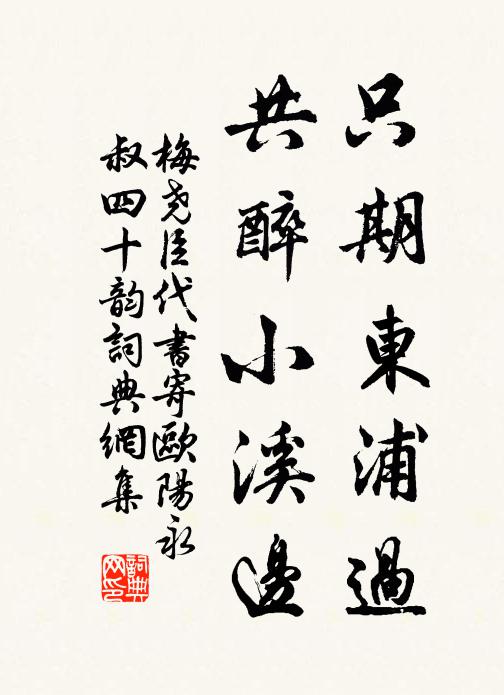 只期東浦過
共醉小溪邊
梅尧臣代書寄歐陽永
叔四十韵詞典網集
詞典
网印